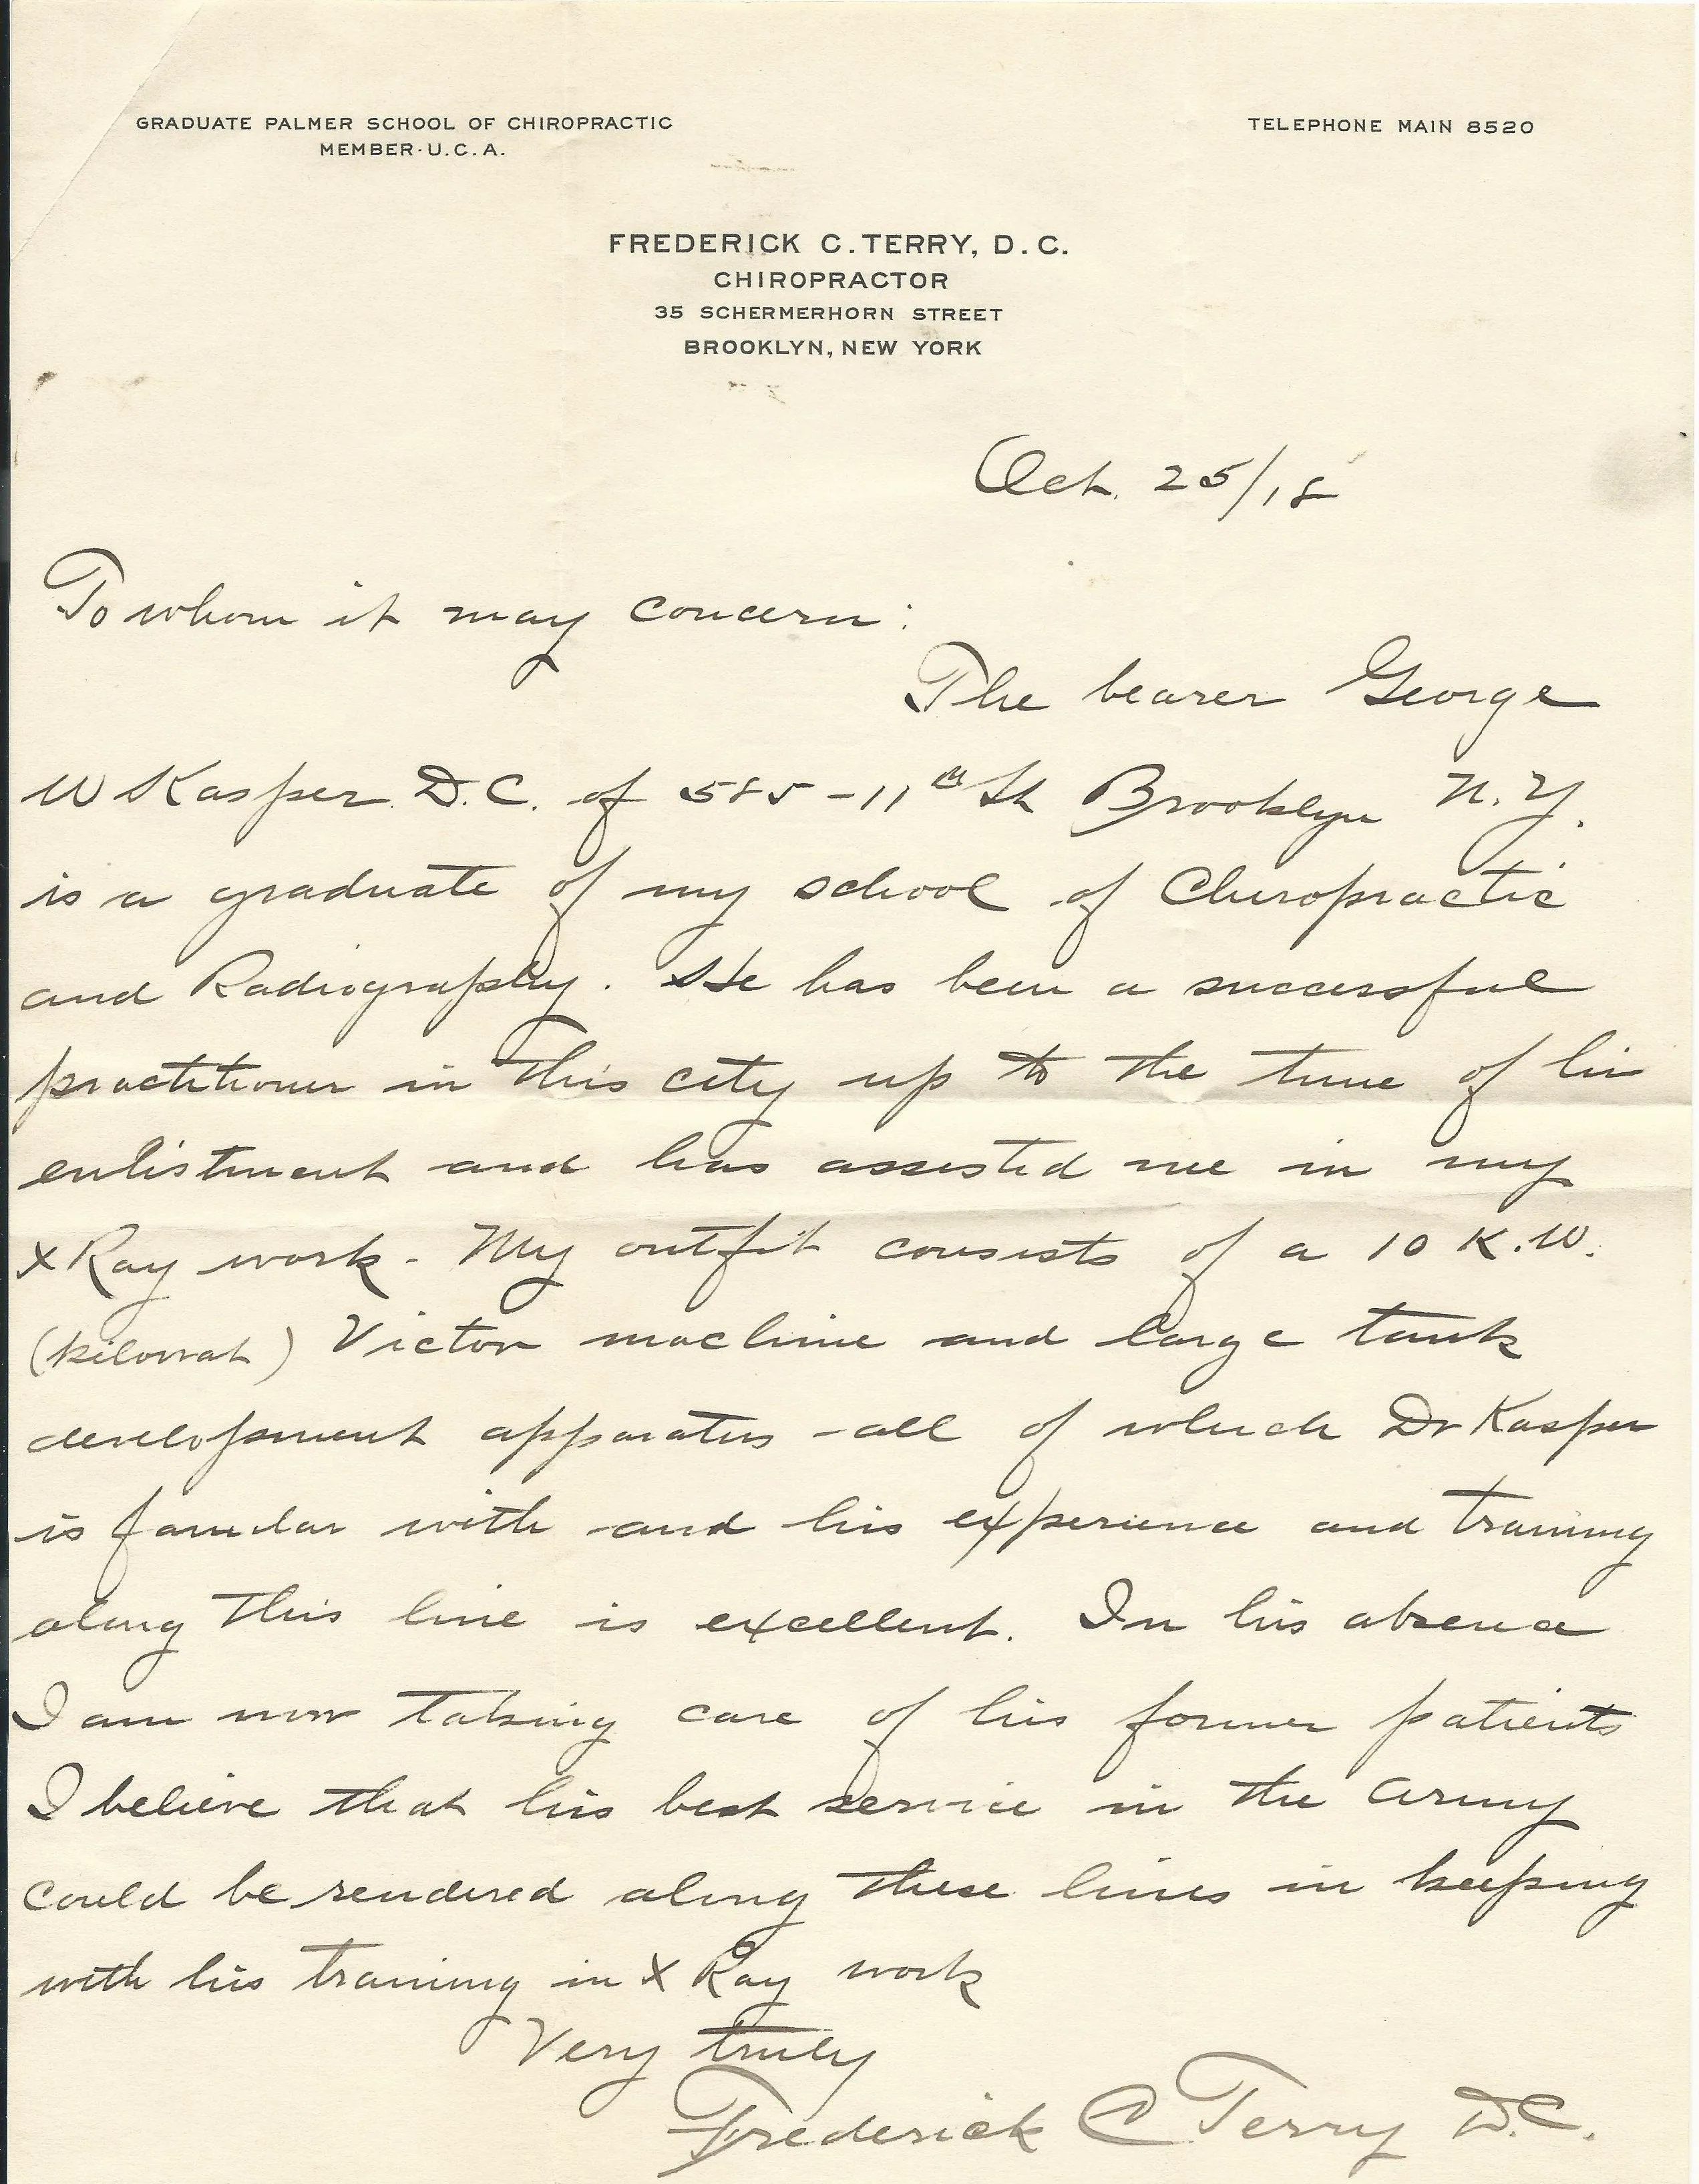 GRADUATE PALMER SCHOOL OF CHIROPRACTIC
MEMBER·U.C.A.
TELEPHONE MAIN 8520
FREDERICK C. TERRY, D.C.
CHIROPRACTOR
35 SCHERMERHORN STREET
BROOKLYN, NEW YORK
Oct. 25/18
To whom it may concern:
The bearer George
W Kasper D.C. of 585-11th St Brooklyn N.Y.
is a graduate of my school of Chiropractic
and Radiography. He has been a successful
practitioner in this city up to the time of his
enlistment and has assisted me in my
X Ray work - My outfit consists of a 10 K.W.
(kilowat) Victor machine and large tank
development apparatus - all of which Dr Kasper
is familar with and his experience and training
along this line is excellent. In his absence
I am now taking care of his former patients
I believe that his best service in the army
could be rendered along these lines in keeping
with his training in X Ray work
Very truly
Frederick C Terry D.C.